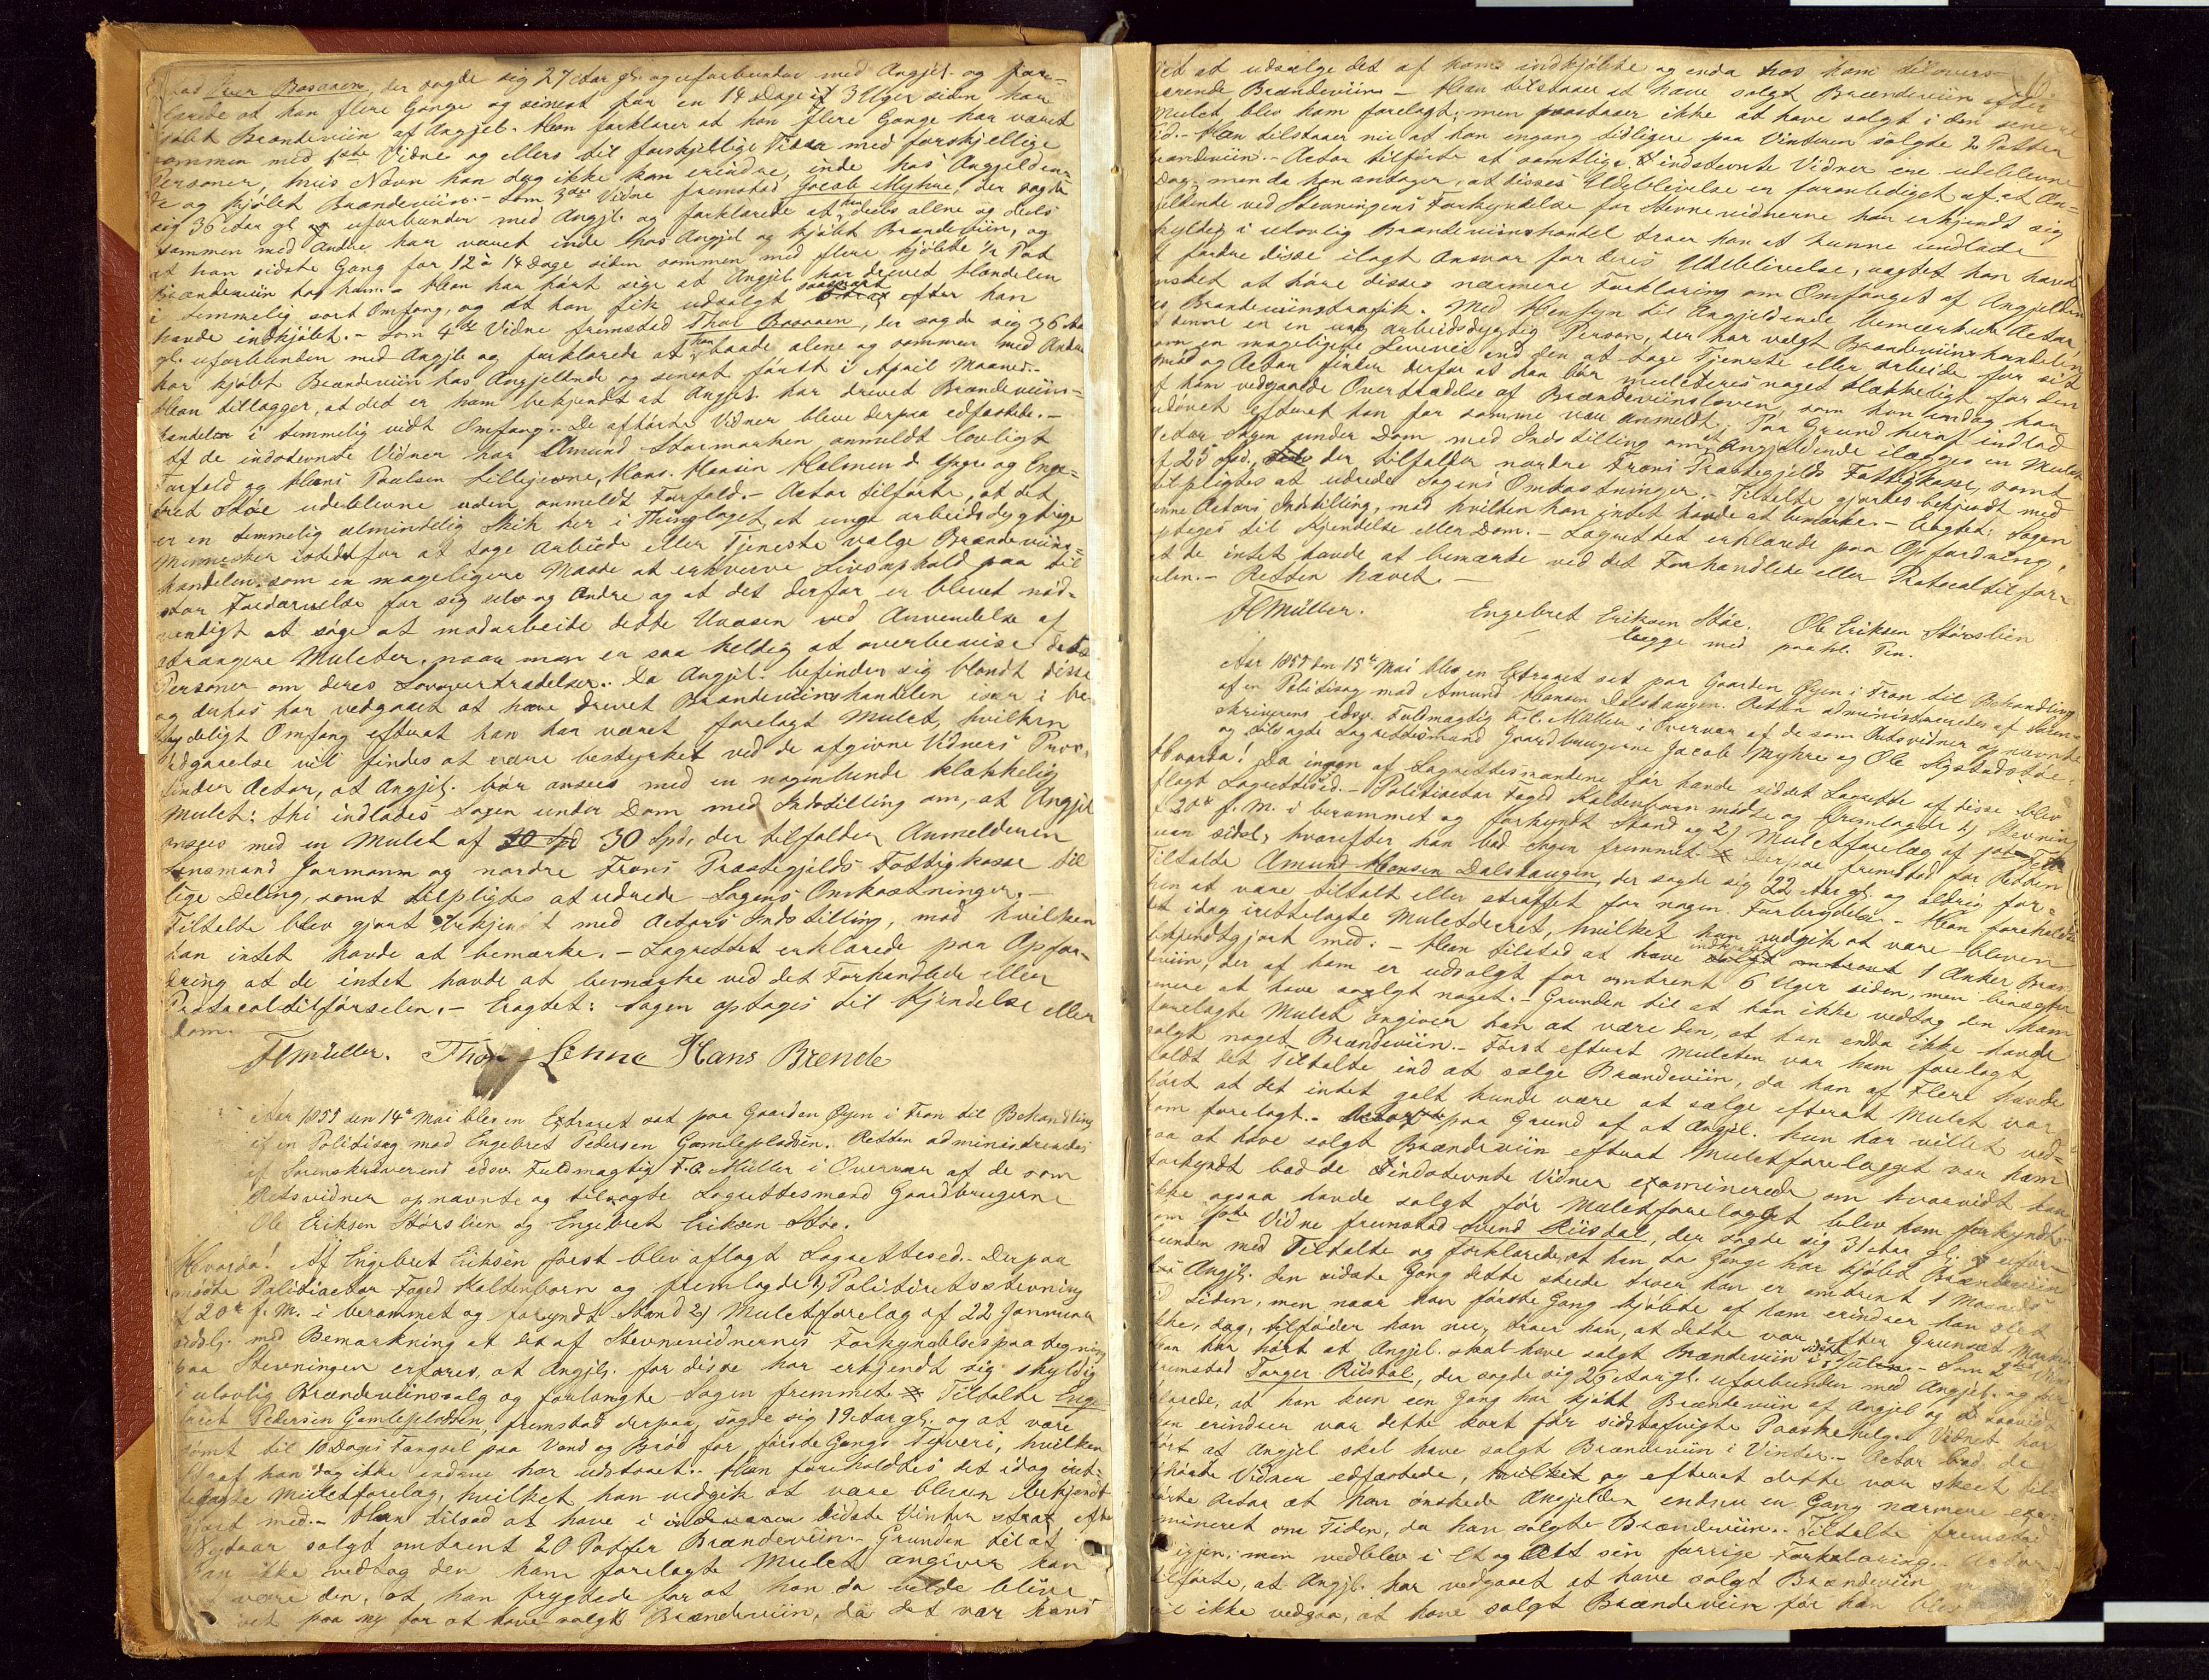 stad Iver Baraaen, der sagde sig 27 Aar gl. og uforbunden med Angjel. og for=
klarede at han flere Gange og senest for en 14 Dage à 3 Uger siden har
kjöbt Brændeviin af Angjel. Han forklarer at han flere Gange har været
sammen med 1ste Vidne og ellers til forskjellige Tider med forskjellige
Personer, hvis Navn han dog ikke kan erindre, inde hos Angjelden=
de og kjöbt Brændeviin. - Som 3die Vidne fremstod Jacob Myhre, der sagde
sig 36 Aar gl. og uforbunden med Angjl. og forklarede at han deels alene og deels
sammen med Andre har været inde hos Angjel og kjöbt Brændeviin, og
at han sidste Gang for 12 à 14 Dage siden sammen med flere kjöbte 1/2 Pot
Brændeviin hos ham. - Han har hört sige at Angjel. har drevet Handelen
i temmelig stort Omfang, og at han fik udsolgt saasnart efter han
havde indkjöbt. - Som 4de Vidne fremstod Thor Baraaen, der sagde sig 36 Aar
gl. uforbunden med Angjl. og forklarede at han baade alene og sammen med Andre
har kjöbt Brændeviin hos Angjeldende og senest först i April Maaned. -
Han tillægger, at det er ham bekjendt at Angjel. har drevet Brændeviins=
handelen i temmelig vidt Omfang. - De afhörte Vidner bleve derpaa edfæstede. -
Af de indstevnte Vidner har Amund Stormorken anmeldt lovligt
Forfald og Hans Paulsen Lillejevne, Hans Hansen Holmen d Yngre og Enge=
bret Stöe udeblevne uden anmeldt Forfald. - Actor tilförte, at det
er en temmelig almindelig Skik her i Thinglaget, at unge arbeidsdygtige
Mennesker istedetfor at söge Arbeide eller Tjeneste vælge Brændeviins=
handelen som en mageligere Maade at erhverve Livsophold paa til
stor Fordærvelse for sig selv og Andre og at det derfor er blevet nöd=
vendigt at söge at modarbeide dette Uvæsen ved Anvendelse af
strængere Mulcter, naar man er saa heldig at overbevise dette
Personer om deres Lovovertrædelser. Da Angjel. befinder sig blandt disse
og desuden har vedgaaet at have drevet Brændeviinshandelen især i be=
tydeligt Omfang efterat han har været forelagt Mulct, hvilken
Vedgaaelse vil findes at være bestyrket ved de afgivne Vidners Prov,
finder Actor, at Angjel. bör ansees med en nogenlunde klækkelig
Mulct: thi indlades Sagen under Dom med Indstilling om, at Angjel
ansees med en Mulct af 30 Spd, der tilfalder Anmelderen
Lensmand Jormann og nordre Frons Præstegjelds Fattigkasse til
lige Deling, samt tilpligtes at udrede Sagens Omkostninger. -
Tiltalte blev gjort bekjendt med Actors Indstilling, mod hvilken
han intet havde at bemærke. - Lagrettet erklærede paa Opfor=
dring at de intet havde at bemærke ved det Forhandlede eller
Protocoltilförselen. - Eragtet: Sagen optages til Kjendelse eller
Dom.
FCMüller. Thor Lenne Hans Brende
Aar 1855 den 14de Mai blev en Extraret sat paa Gaarden Öyen i Fron til Behandling
af en Politisag mod Engebret Pedersen Gamlepladsen. Retten administreredes
af Sorenskriverens edsv. Fuldmægtig F. C. Müller i Overvær af de som
Retsvidner opnævnte og tilsagte Lagrettesmænd Gaardbrugerne
Ole Eriksen Störslien og Engebret Eriksen Stöe.
Hvorda! Af Engebret Eriksen först blev aflagt Lagrettesed. Derpaa
mödte Politiactor Foged Kaltenborn og fremlagde 1) Politiretsstevning
af 20de f. M. i berammet og forkyndt Stand 2) Mulctforelæg af 22 Januar
sidstl. med Bemærkning at det af Stevnevidnernes Forkyndelsespaategning
paa Stevningen erfares, at Angjel. for disse har erkjendt sig skyldig
i ulovlig Brændeviinssalg og forlangte Sagen fremmet. Tiltalte Enge=
bret Pedersen Gamlepladsen, fremstod derpaa, sagde sig 19 Aar gl. og at være
dömt til 10 Dages Fængsel paa Vand og Bröd for förste Gangs Tyveri, hvilken
Straf han dog ikke endnu har udstaaet. - Han foreholdtes det idag iret=
telagte Mulctforelæg, hvilket han vedgik at være bleven bekjendt
gjort med. - Han tilstod at have i sidste Vinter strax efter
Nytaar solgt omtrent 20 Potter Brændeviin. - Grunden til at
han ikke vedtog den ham forelagte Mulct angiver han
at være den, at han frygtede for at han da vilde blive
vet paa ny for at have solgt Brændeviin, da det var hans
Agt at udsælge det af ham indkjöbte og enda hos ham tilovers=
værende Brændeviin - Han tilstaaer at have solgt Brændeviin efter
Mulct blev ham forelagt, men paastaaer ikke at have solgt i den senere
Tid. - Han tilstaaer nu at han engang tidligere paa Vinteren solgte 2 Potter
Brændeviin. - Actor tilförte at samtlige indstevnte Vidner ere udeblevne
Dag, men da han antager, at disses Udeblivelse er foranlediget af, at An=
gjeldende ved Stevningens Forkyndelse for Stevnevidnerne har erkjendt sig
skyldig i ulovlig Brændeviinshandel troer han at kunne undlade
at fordre disse ilagt Ansvar for deres Udeblivelse, uagtet han havde
önsket at höre disses nærmere Forklaring om Omfanget af Angjelden
des Brændeviinstrafik. Med Hensyn til Angjeldende bemærkede Actor,
at denne er en ung arbeidsdygtig Person, der har valgt Brændeviinshandelen
som en mageligere Levevei end den at tage Tjeneste eller arbeide for sit
Bröd og Actor finder derfor at han bör mulcteres noget klækkeligt for den
af ham vedgaaede Overtrædelse af Brændeviinsloven, som han endog har
udövet efterat han for samme var anmeldt. Paa Grund heraf indlod
Actor Sagen under Dom med Indstilling om, at Angjeldende ilægges en Mulct
af 25 Spd., der tilfalder nordre Frons Præstegjelds Fattigkasse, samt
tilpligtes at udrede Sagens Omkostninger. - Tiltalte gjordes bekjendt med
denne Actors Indstilling, mod hvilken han intet havde at bemærke. - Eragtet: Sagen
optages til Kjendelse eller Dom. - Lagrettet erklærede paa Opfordring,
at de intet havde at bemærke ved det Forhandlede eller Protocoltilför=
selen. - Retten hævet. -
FCMüller. Engebret Eriksen Stöe. Ole Eriksen Störslien
begge med paah. Pen.
Aar 1855 den 15de Mai blev en Extraret sat paa Gaarden Öyen i Fron til Behandling
af en Politisag mod Amund Hansen Dalshaugen. Retten administreredes af Soren=
skriverens edsv. Fuldmægtig F. C. Müller i Overvær af de som Retsvidner opnævnte
og tilsagte Lagrettesmænd Gaardbrugerne Jacob Myhre og Ole Sygstadstöe.
Hvorda! Da ingen af Lagrettesmændene för havde siddet Lagrette af disse blev
aflagt Lagrettesed. - Politiactor Foged Kaltenborn mödte og fremlagde 1) Stevning
af 20de f. M. i berammet og forkyndt Stand og 2) Mulctforelæg af
uar sidstl, hvorefter han bad Sagen fremmet. Derpaa fremstod for Retten
Tiltalte Amund Hansen Dalshaugen, der sagde sig 22 Aar gl. og aldrig för=
hen at være tiltalt eller straffet for nogen Forbrydelse. - Han foreholdtes
det idag irettelagte Mulctforelæg, hvilket han vedgik at være bleven
bekjendtgjort med. - Han tilstod at have indkjöbt 1 Anker Bræn=
deviin, der af ham er udsolgt for omtrent 6 Uger siden, men benægter
senere at have solgt noget. - Grunden til at han ikke vedtog den ham
forelagte Mulct angiver han at være den, at han endda ikke havde
solgt noget Brændeviin. - Först efterat Mulcten var ham forelagt
faldt det Tiltalte ind at sælge Brændeviin, da han af Flere havde
hört at det intet galt kunde være at sælge efterat Mulct var
ham forelagt. - Actor paa Grund af at Angjel. kun har villet ved=
gaa at have solgt Brændeviin efterat Mulctforelægget var ham
forkyndt bad de indstevnte Vidner examinerede om hvorvidt han
ikke ogsaa havde solgt för Mulctforelægget blev ham forkyndt.
Som 1ste Vidne fremstod Svend Riisdal, der sagde sig 31 Aar gl. og ufor=
bunden med Tiltalte og forklarede, at han to Gange har kjöbt Brændeviin
hos Angjl. den sidste Gang dette skeede troer han er omtrent 1 Maaneds
Tid siden, men naar han förste Gang kjöbte af ham erindrer han slet
ikke, dog, tilföier han nu, troer han, at dette var efter Grundset Marked
Han har hört at Angjel. skal have solgt Brændeviin i sidste Julen. - Som 2det Vidne
fremstod Torger Riisdal, der sagde sig 26 Aar gl. uforbunden med Angjel. og for=
klarede, at han kun een Gang har kjöbt Brændeviin af Angjel og saavidt
han erindrer var dette kort för sidstafvigte Paaskehelg. Vidnet har
hört at Angjel skal have solgt Brændeviin i Vinter. - Actor bad de
afhörte Vidner edfæstede, og efterat dette var skeet til=
förte Actor at han önskede Angjelden endnu en Gang nærmere exa=
mineret om Tiden, da han solgte Brændeviin. - Tiltalte fremstod
igjen, men vedblev i Et og Alt sin forrige Forklaring. - Actor
tilförte, at Angjl. har vedgaaet at have solgt Brændeviin
vil ikke vedgaa, at have solgt Brændeviin för han blev